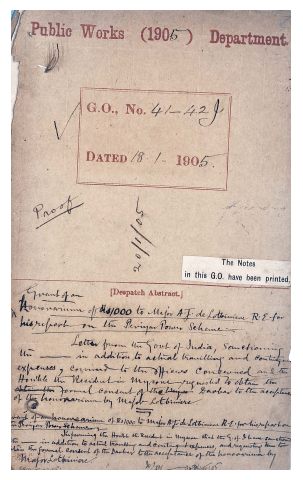 Public Works (1905) Department.
G.O., No. 41-42 J
DATED 18-1-1905.
Proof
20/1/05
The Notes
in this G.O. have been printed.
[Despatch Abstract.]
Grant of an
Honorarium of 1000 to Major A J de Lotbiniere R.E. for
his report on the Periyar Power Scheme
Letter from the Govt of India, Sanctioning
the — in addition to actual travelling and
expenses, to the officers concerned and the
Hon'ble the Resident in Mysore requested to obtain the
formal consent of the Darbar to the acceptance
of the honorarium by Major Lotbiniere
of an honorarium of 1000 to Major A J de Lotbiniere R.E. for his report on
Periyar Power Scheme
Informing the Hon'ble the Resident in Mysore that the G of India
the — in addition to actual travelling and expenses, and requesting him to
the formal consent of the Darbar to the acceptance of the honorarium by
Major Lotbiniere